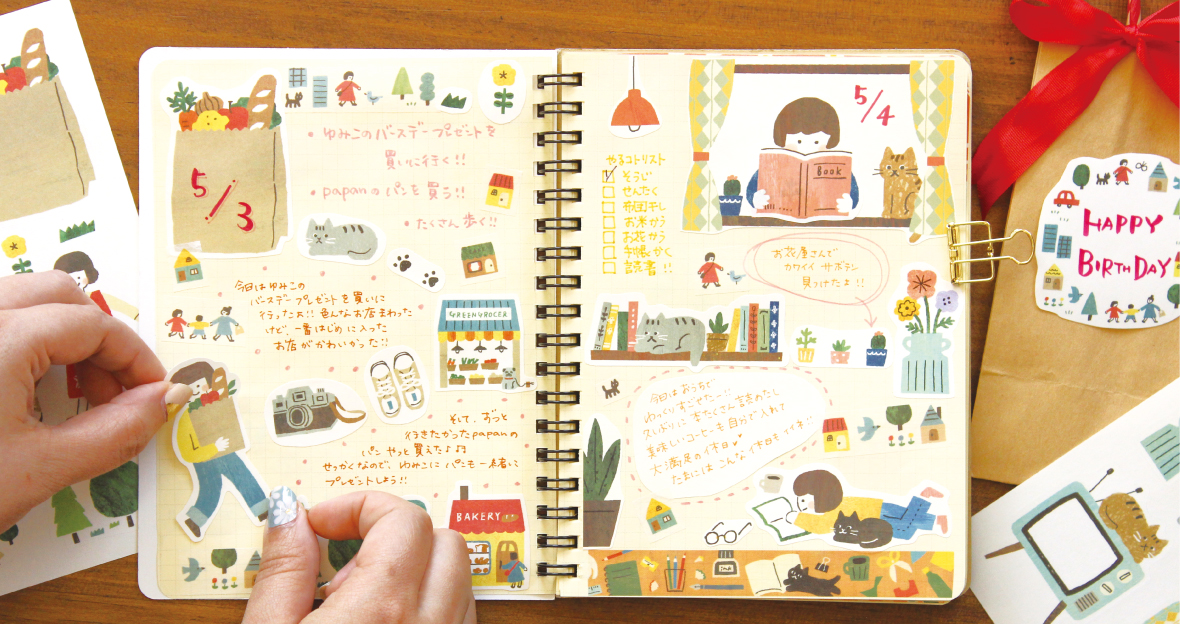 5/3
• ゆみこのバースデープレゼントを
買いに行く!!
• papanのパンを買う!!
• たくさん歩く!!
今日はゆみこの
バースデープレゼントを買いに
行ったよ!! 色んなお店まわった
けど、一番はじめに入った
お店がかわいかった!!
GREENGROCER
そして、ずっと
行きたかったpapanの
パン やっと買えた♪♪
せっかくなので、ゆみこにパンも一緒に
プレゼントしよう!!
BAKERY
5/4
Book
やるコトリスト
そうじ
せんたく
布団干し
お米かう
お花かう
手帳かく
読書!!
お花屋さんで
カワイイ サボテン
見つけたよ!!
今日はおうちで
ゆっくりすごせたー!!
久しぶりに本たくさん読めたし
美味しいコーヒーも自分で入れて
大満足の休日♥
たまには こんな休日もイイネ!!
HAPPY
BIRTHDAY